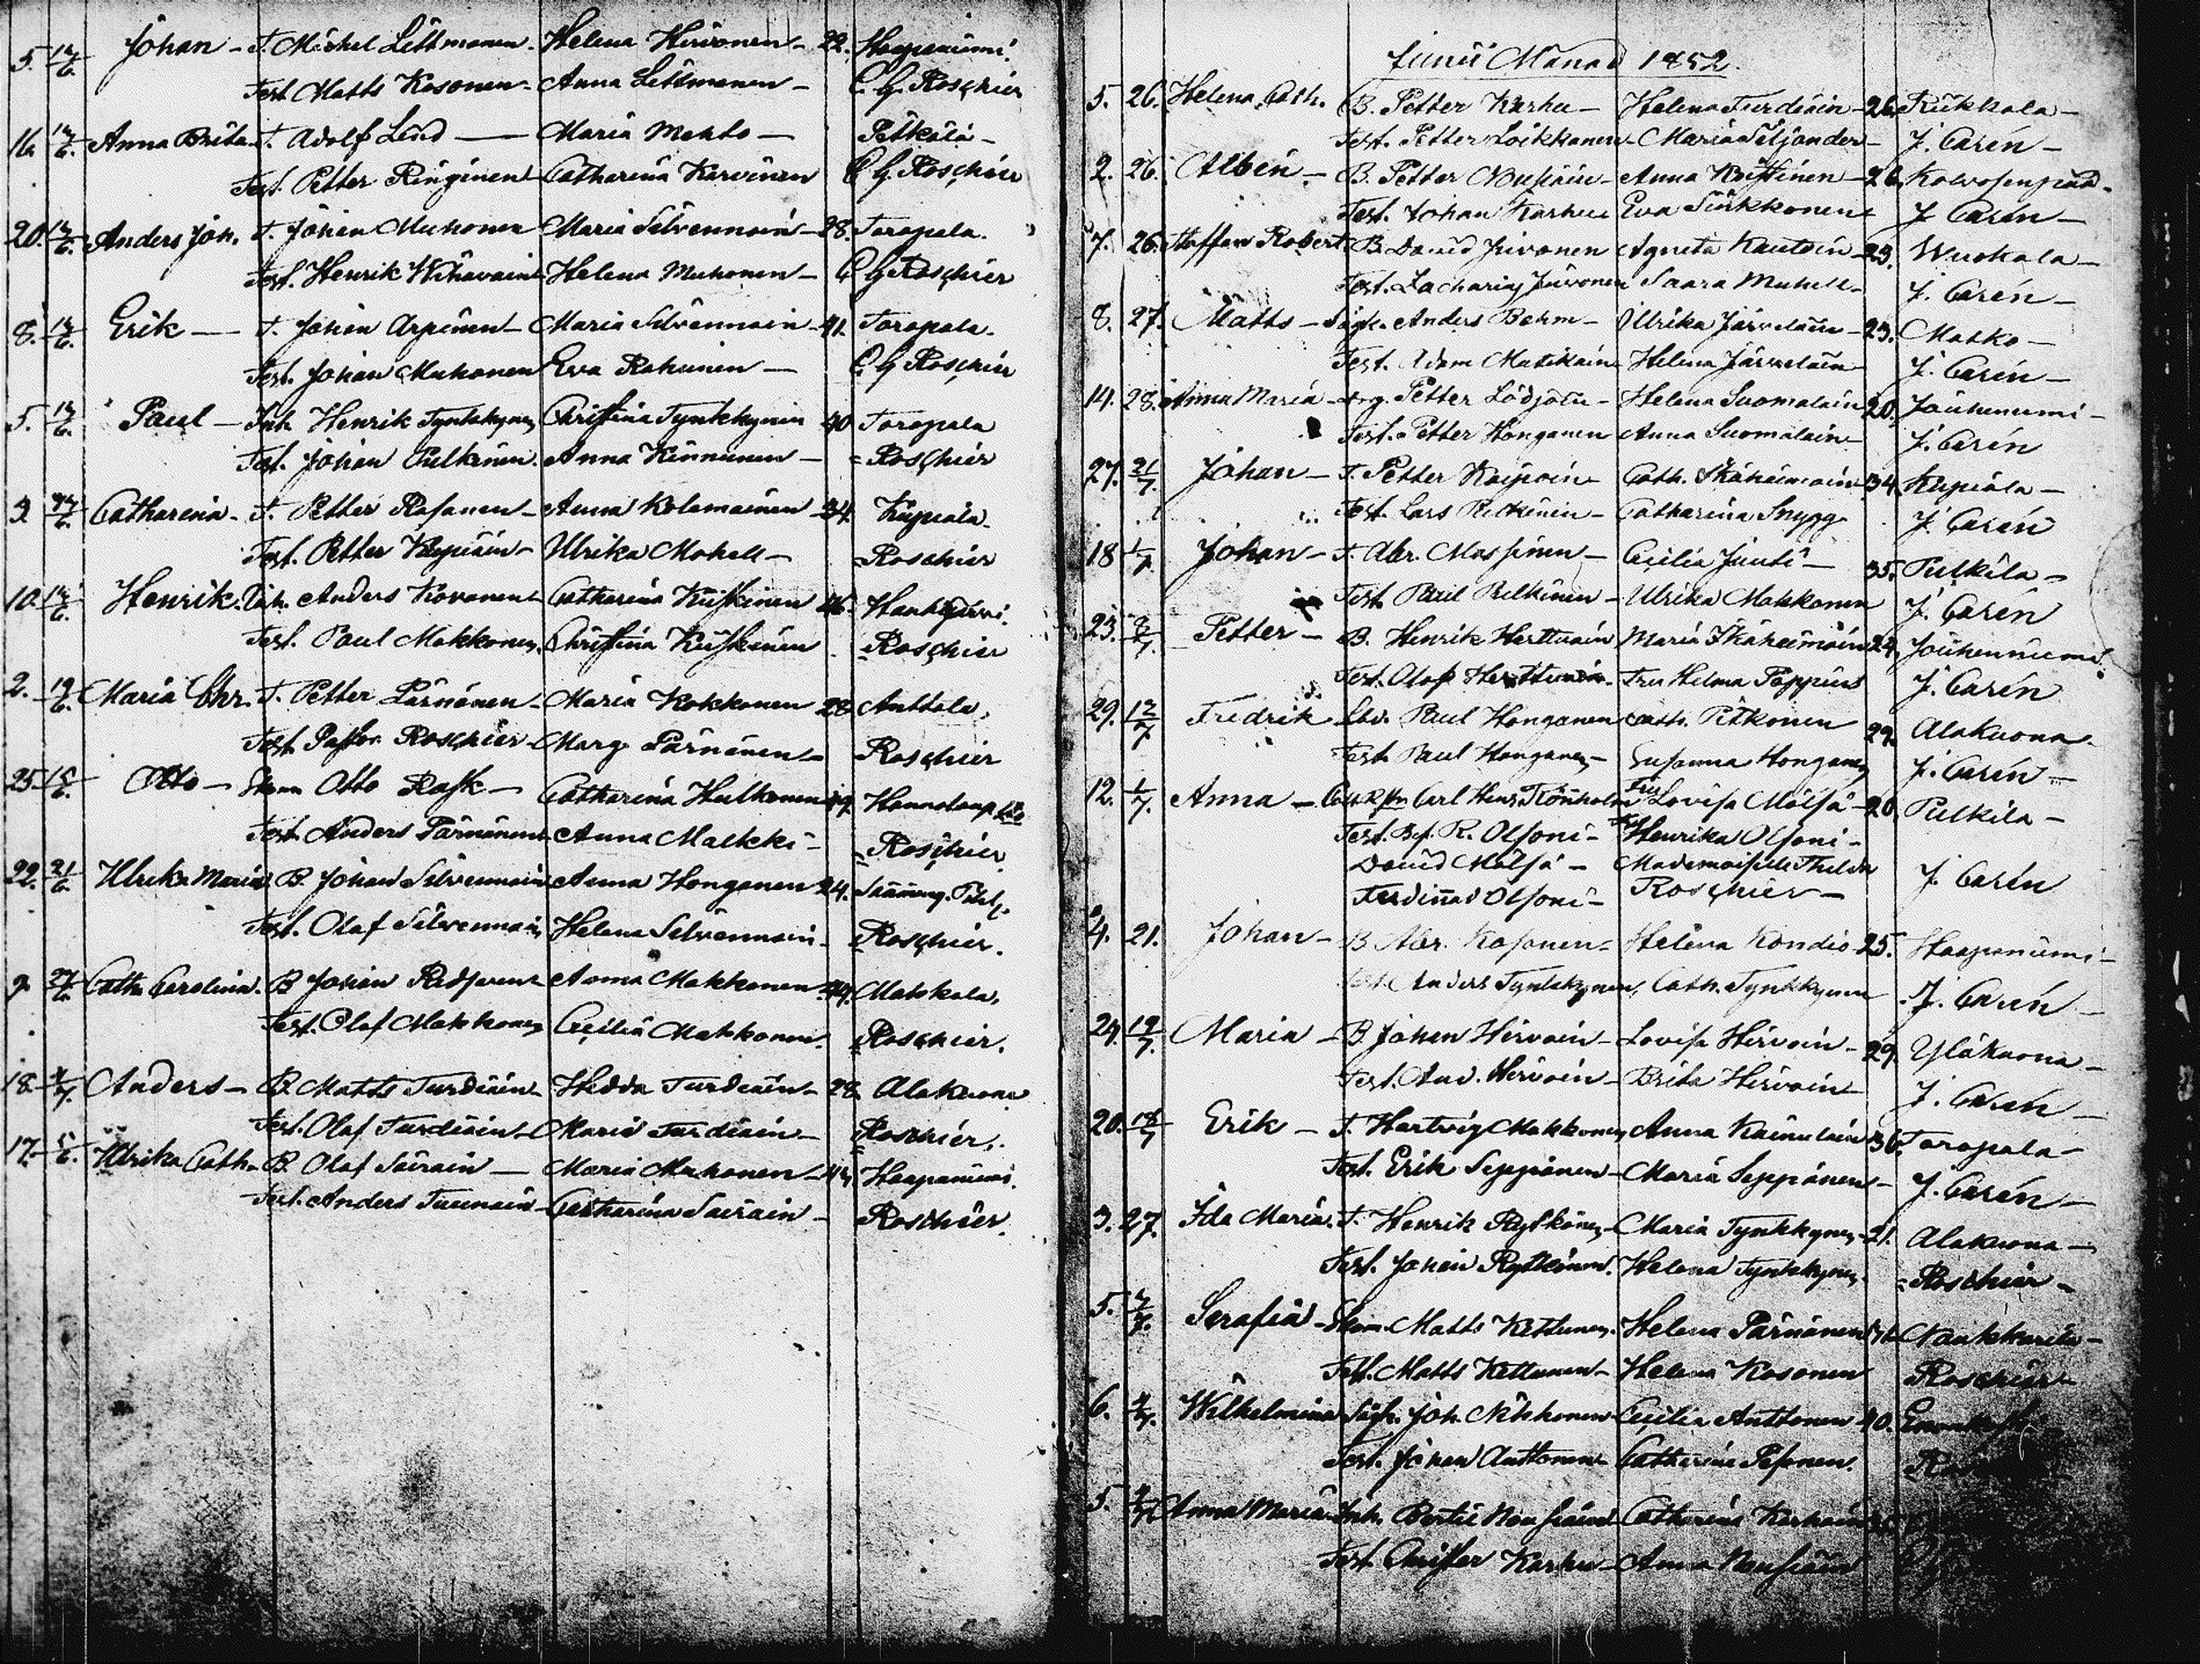 5. 12/6. Johan - T. Michel Littmanen - Helena Hirvonen - 22. Haapaniemi.
Test. Matts Kosonen - Anna Littmanen - C. G. Roschier
16. 12/6. Anna Brita - T. Adolf Lind - Maria Mehto - Petkälä -
Test. Petter Ringinen - Catharina Karvinen C. G. Roschier
20. 12/6. Anders Joh. T. Johan Muhonen Maria Silvennoin - 28. Toropala.
Test. Henrik Wihavain Helena Muhonen - C. G. Roschier
8. 12/6. Erik - T. Johan Arpinen - Maria Silvennoin - 41. Toropala.
Test. Johan Muhonen Eva Rahunen - C. G. Roschier
5. 12/6. Paul - Inh. Henrik Tynkkynen Christina Tynkkynen 40 Toropala
Test. Johan Pulkinen. Anna Kinnunen - = Roschier
Catharina - T. Petter Rasanen - Anna Kolemainen - 34. Kupiala -
Test. Petter Kupiain - Ulrika Mohell - = Roschier
10. 12/6. Henrik. Anders Kovanen - Catharina Kuiskinen 46. Hankajärvi.
Test. Paul Makkonen. Christina Kuiskinen = Roschier
2. 19/6. Maria Chr. T. Petter Pärnänen - Maria Kokkonen 28 Anttola,
Test. Pastor Roschier - Marg. Pärnänen - Roschier
25. 15/6. Otto - Otto Rask - Catharina Hulkonen
Test. Anders Pärnänen - Anna Malkki - = Roschier
22. 21/6. Ulrika Maria B. Johan Silvennoin Anna Honganen 24.
Test. Olaf Silvennoin Helena Silvennoin - = Roschier.
9. 27/6. Cath. Carolina. B. Johan Anna Makkonen 44. Makkala,
Test. Olaf Makkonen Cecilia Makkonen. = Roschier.
18. Anders - B. Matts Turdiain - Hedda Turdiain - 28 Alakuona
Test. Olaf Turdiain - Maria Turdiain - = Roschier.
17. Ulrika Cath. B. Olaf Sairain - Maria Muhonen - 44 Haapaniemi.
Test. Anders Tuunain - Catharina Sairain - = Roschier.
Junii Månad 1852.
5. 26. Helena Cath. B. Petter Karhu - Helena Turdiain - 26. Rukkala -
Test. Petter Loikkanen - Maria Siljander - J. Carén -
2. 26. Albin - B. Petter Nousiain - Anna Kristinen - 26.
Test. Johan Karhu Eva Sinkkonen J. Carén -
7. 26. Staffan Robert B. David Juvonen Agneta Kautoin - 23. Wuokala -
Test. Zacharias Juvonen Saara Muhell - J. Carén -
8. 27. Matts - Anders Behm - Ulrika Järveläin - 23. Matko -
Test. Adam Matikain Helena Järveläin J. Carén -
14. 28. Anna Maria - Petter Lödjöin - Helena Suomalain 20. Jouhenniemi -
Test. Petter Honganen Anna Suomalain - J. Carén
27. 21/7. Johan - T. Petter Kaipain Cath. Ikäheimoin 34. Kupiala -
Test. Lars Pulkinen - Catharina Snygg J. Carén
18 1/7 Johan - T. Abr. Massinen - Cecilia Juuti - 35. Pulkila -
Test. Paul Pulkinen - Ulrika Makkonen J. Carén
23. 8/7. Petter - B. Henrik Herttuain Maria Ikäheimoin 24. Jouhenniemi.
Test. Olof Herttuain - Fru Helma Poppius J. Carén
29. 12/7 Fredrik Paul Honganen Cath. Pitkonen 29. Alakuona.
Test. Paul Honganen - Susanna Honganen J. Carén -
12. 1/7. Anna - Carl Henr. Rönnholm Fru Lovisa Mölsä - 20. Pulkila -
Test. R. Olsoni - Henrika Olsoni -
David Mölsä - Mademoiselle Thilda J. Carén
Ferdinad Olsoni - Roschier -
4. 21. Johan - B. Abr. Kosonen - Helena Kondio - 25. Haapaniemi -
Test. Anders Tynkkynen, Cath. Tynkkynen J. Carén -
24. 19/7. Maria - B. Johan Hirvoin - Lovisa Hirvoin - 29. Yläkuona -
Test. And. Hirvoin - Brita Hirvoin - J. Carén -
20. 18/7 Erik - T. Hartvig Makkonen Anna Kainulain 36. Toropala -
Test. Erik Seppänen - Maria Seppänen - J. Carén -
3. 27. Ida Maria. T. Henrik Rytkönen - Maria Tynkkynen - 21. Alakuona -
Test. Johan Rytkönen. Helena Tynkkynen. = Roschier -
5. Serafia - Matts Kettunen. Helena Pärnänen Naukkarila -
Test. Matts Kettunen - Helena Kosonen Roschier
6. Wilhelmina Joh. Nikkonen Cecilia Anttonen 40.
Test. Johan Anttonen Catharina Pesonen.
5. Anna Maria Inh. Bertil Nousiain Catharina Karhain
Test. Christer Karhu - Anna Nousiain